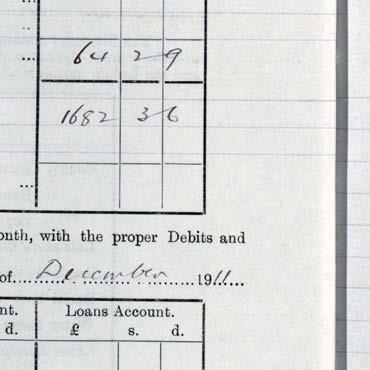 ...
..
... 64 2 9
1682 3 6
...
onth, with the proper Debits and
of... December ... 1911...
nt. Loans Account.
d. £ s. d.